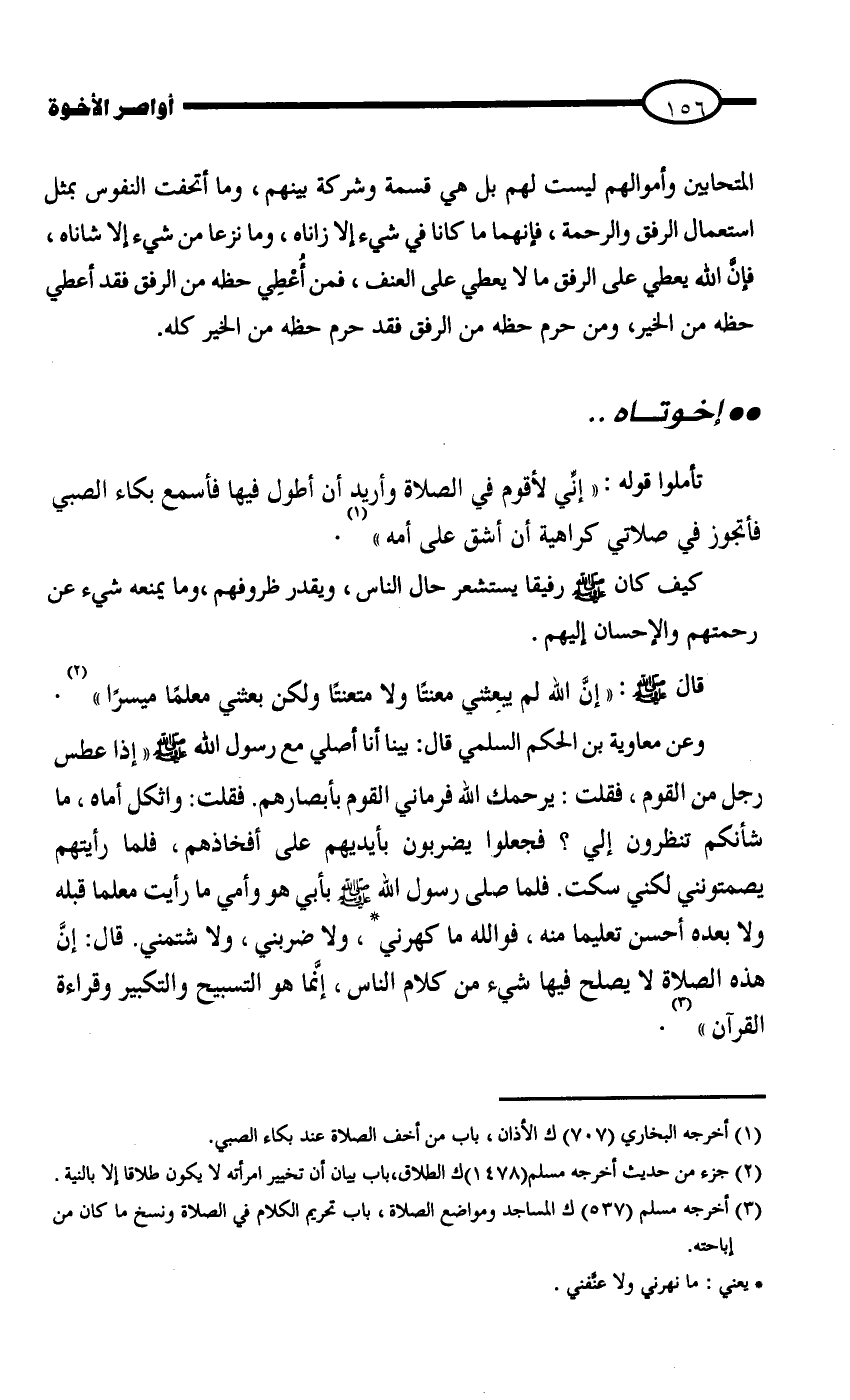 ١٥٦ أواصر الأخوة
المتحابين وأموالهم ليست لهم بل هي قسمة وشركة بينهم ، وما أتحفت النفوس بمثل
استعمال الرفق والرحمة ، فإنهما ما كانا في شيء إلا زاناه ، وما نزعا من شيء إلا شاناه ،
فإنَّ الله يعطي على الرفق ما لا يعطي على العنف ، فمن أُعْطِي حظه من الرفق فقد أعطي
حظه من الخير، ومن حرم حظه من الرفق فقد حرم حظه من الخير كله.
●● إخوتـــاه ..
تأملوا قوله : « إنِّي لأقوم في الصلاة وأريد أن أطول فيها فأسمع بكاء الصبي
فأتجوز في صلاتي كراهية أن أشق على أمه » (١) .
كيف كان ﷺ رفيقا يستشعر حال الناس ، ويقدر ظروفهم ،وما يمنعه شيء عن
رحمتهم والإحسان إليهم .
قال ﷺ : « إنَّ الله لم يبعثني معنتًا ولا متعنتًا ولكن بعثني معلمًا ميسرًا » (٢) .
وعن معاوية بن الحكم السلمي قال: بينا أنا أصلي مع رسول الله ﷺ « إذا عطس
رجل من القوم ، فقلت : يرحمك الله فرماني القوم بأبصارهم. فقلت: واثكل أماه ، ما
شأنكم تنظرون إلي ؟ فجعلوا يضربون بأيديهم على أفخاذهم، فلما رأيتهم
يصمتونني لكني سكت. فلما صلى رسول الله ﷺ بأبي هو وأمي ما رأيت معلما قبله
ولا بعده أحسن تعليما منه ، فوالله ما كهرني* ، ولا ضربني ، ولا شتمني. قال: إنَّ
هذه الصلاة لا يصلح فيها شيء من كلام الناس ، إنَّما هو التسبيح والتكبير وقراءة
القرآن » (٣) .
(١) أخرجه البخاري (٧٠٧) ك الأذان ، باب من أخف الصلاة عند بكاء الصبي.
(٢) جزء من حديث أخرجه مسلم(١٤٧٨)ك الطلاق،باب بيان أن تخيير امرأته لا يكون طلاقا إلا بالنية .
(٣) أخرجه مسلم (٥٣٧) ك المساجد ومواضع الصلاة ، باب تحريم الكلام في الصلاة ونسخ ما كان من
إباحته.
● يعني : ما نهرني ولا عنَّفني .